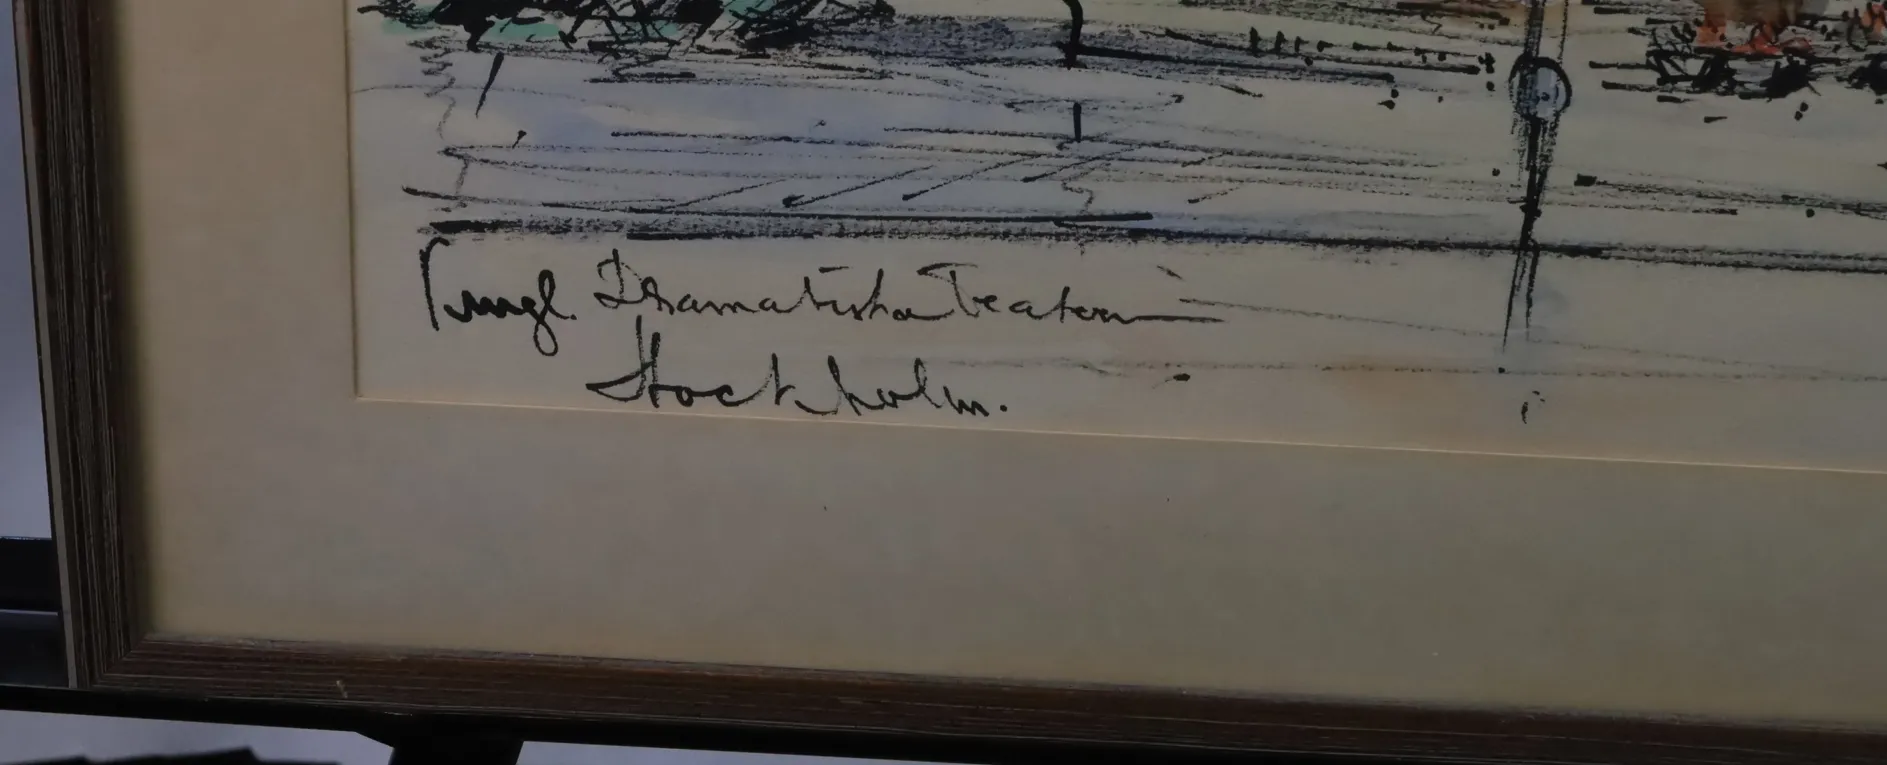 Kungl. Dramatiska Teatern
Stockholm.